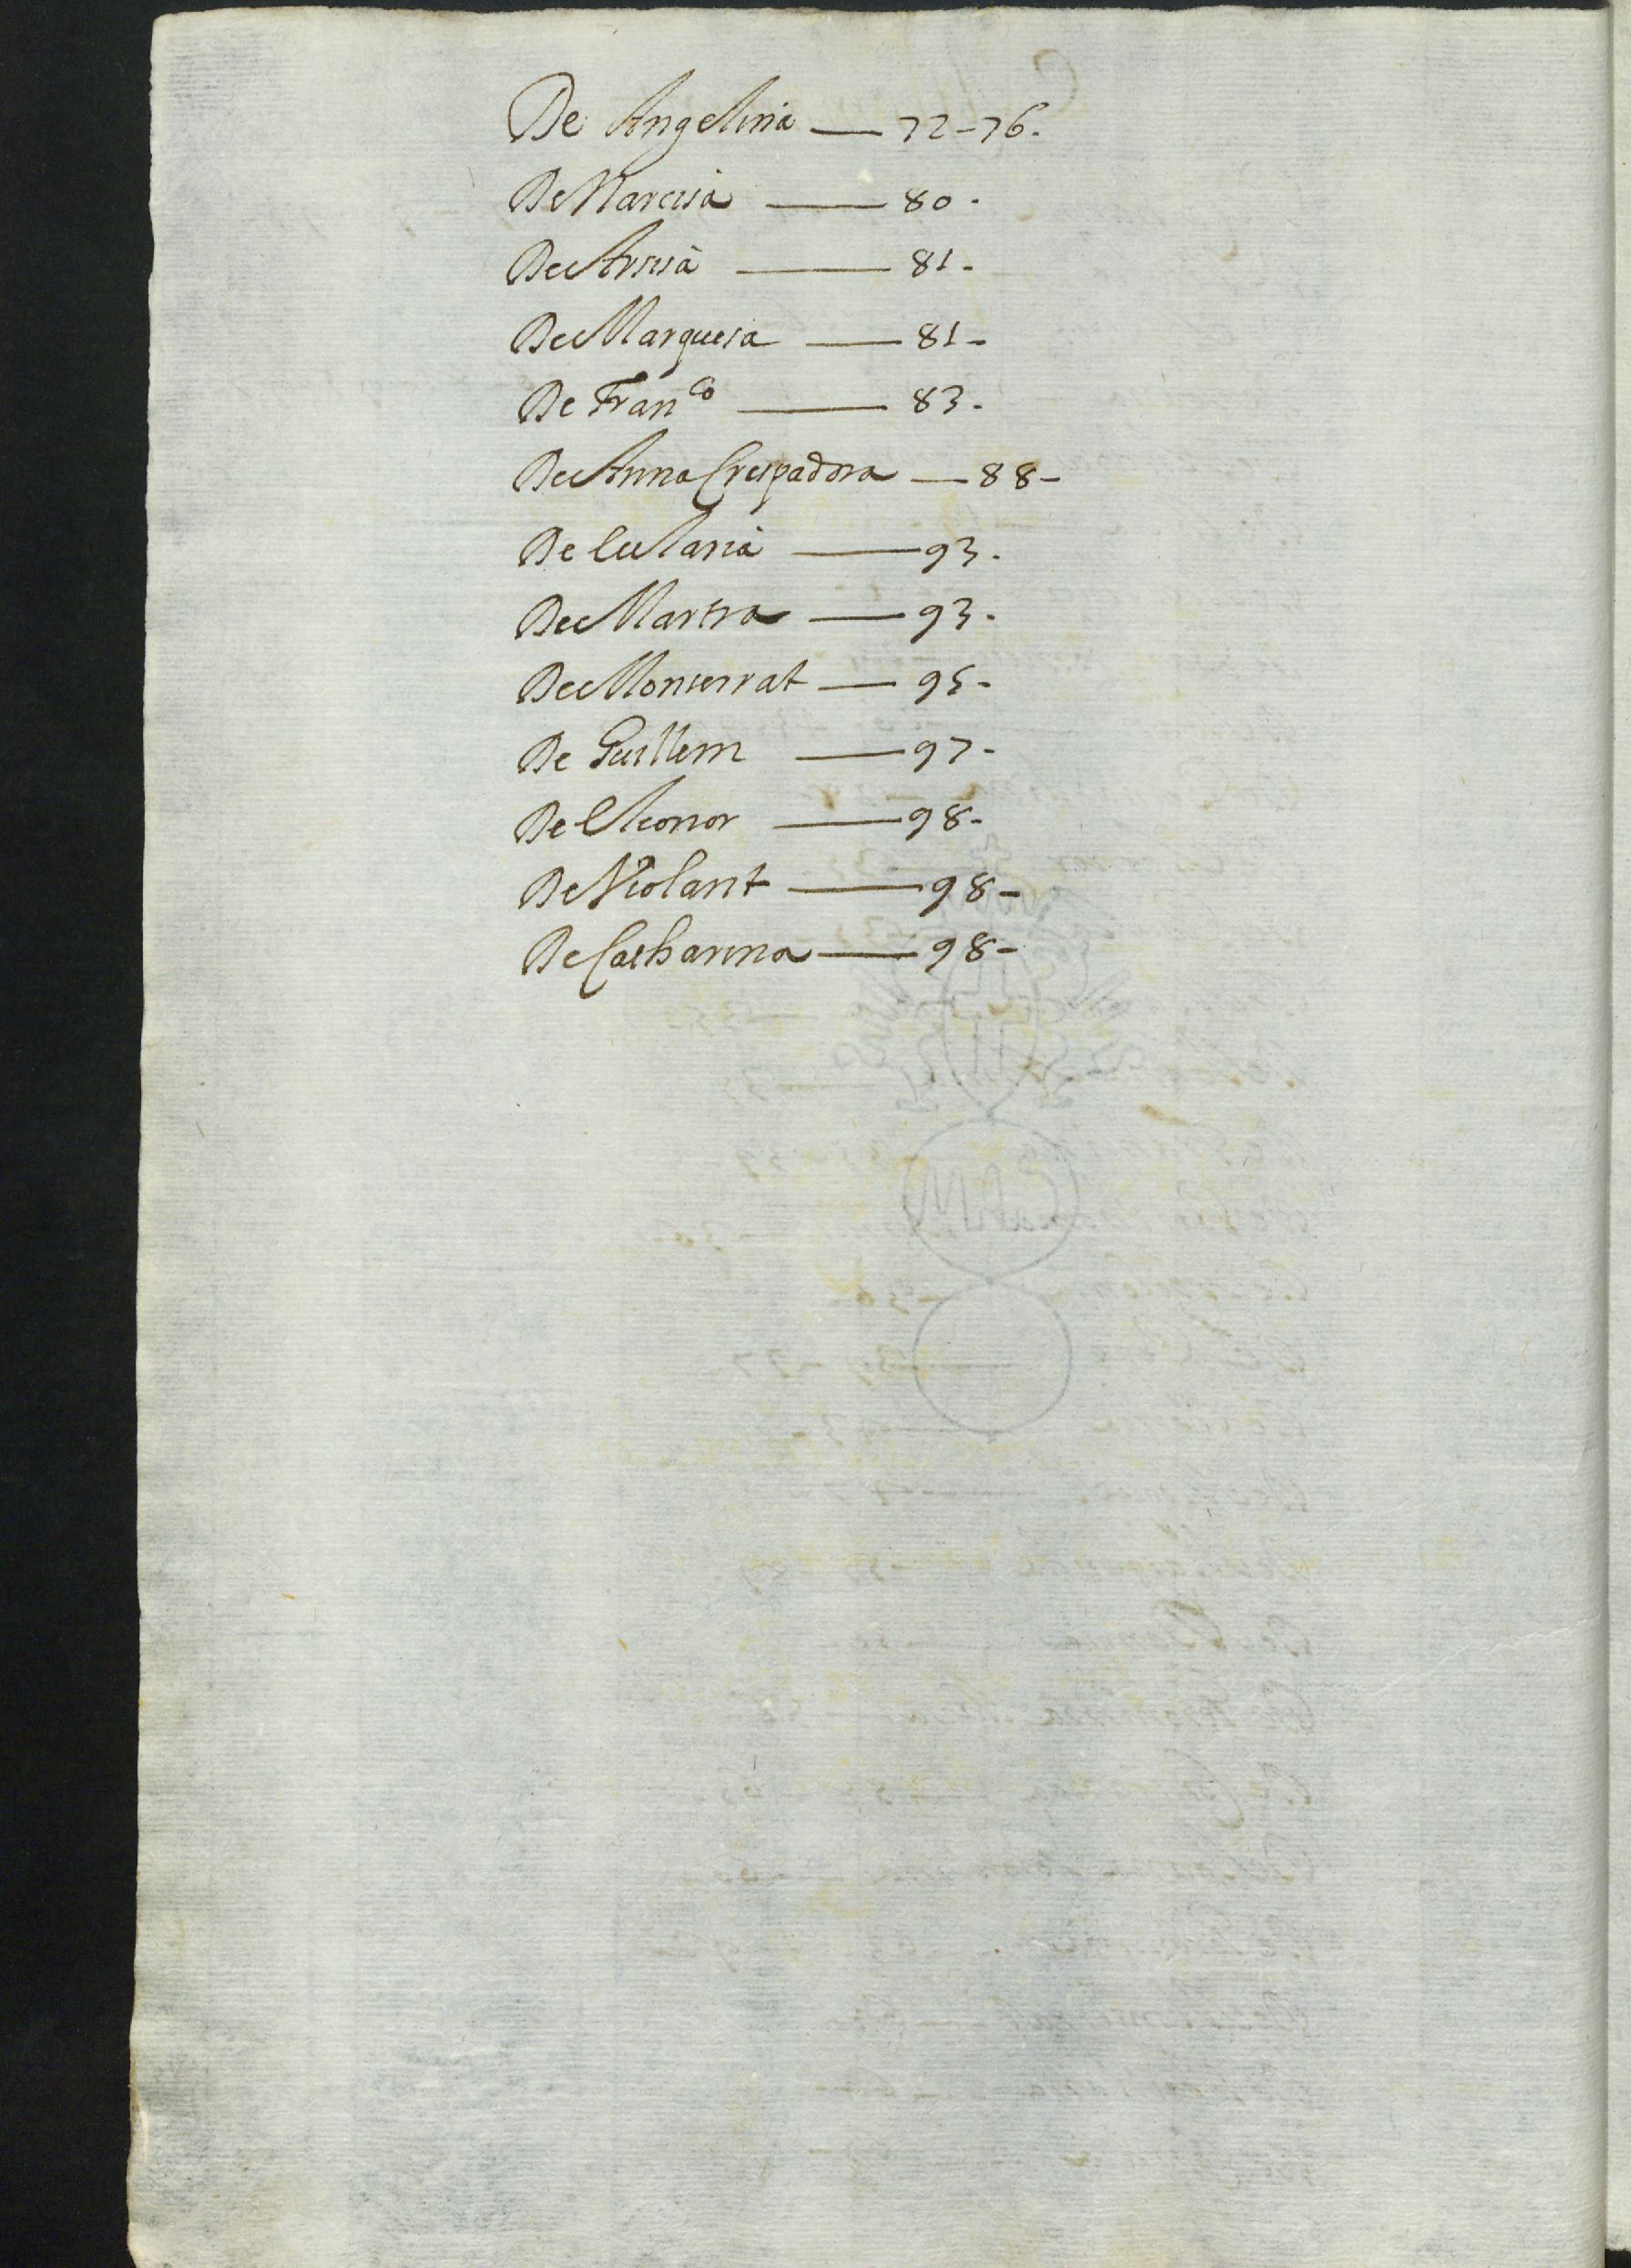 De Angelina — 72-76.
De Narcisa — 80.
De Anna — 81.
De Marquesa — 81-
De Franco — 83.
De Anna Crespadora — 88-
De Eularia — 93.
De Martra — 93.
De Monserrat — 95-
De Guillem — 97-
De Eleonor — 98-
De Violant — 98-
De Catharina — 98-